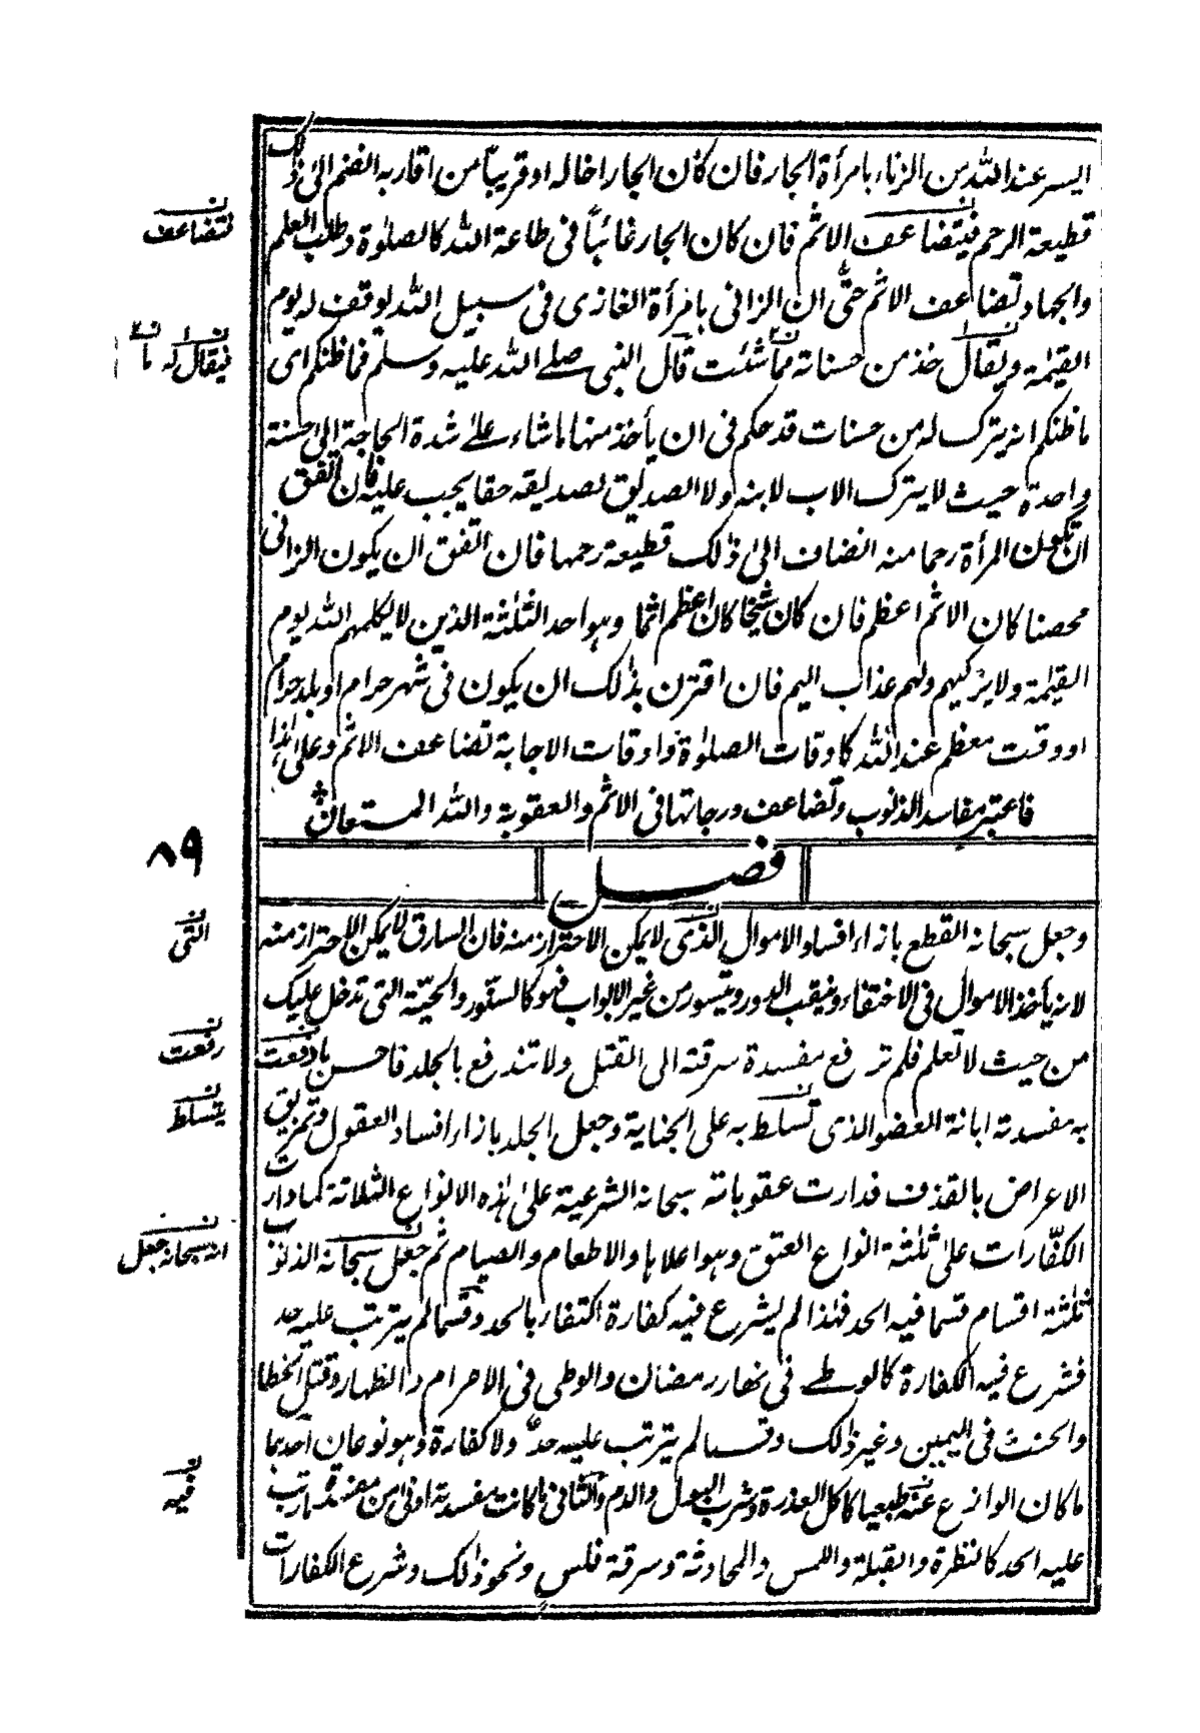 ايسر عند الله من الزناء بامرأة الجار فان كان الجار اخاله او قريباً من اقاربه انضم الى ذٰلك
قطيعة الرحم فيتضاعف الاثم فان كان الجار غائباً فى طاعة الله كالصلوٰة وطلب العلم
والجهاد تضاعف الاثم حتّٰى ان الزانى بامرأة الغازى فى سبيل الله يوقف له يوم
القيٰمة ويقال خذ من حسناته مما شئت قال النبى صلے الله عليه وسلم فما ظنكم اى
ما ظنكم انه يترك له من حسنات قد حكم فى ان يأخذ منها ما شاء علےٰ شدة الحاجة الىٰ حسنة
واحدة حيث لا يترك الاب لابنه ولا الصديق لصديقه حقا يجب عليه فان اتفق
ان تكون المرأة رحما منه انضاف الىٰ ذٰلك قطيعة رحمها فان اتفق ان يكون الزانى
محصنا كان الاثم اعظم فان كان شيخا كان اعظم اثما وهو احد الثلٰثة الذين لا يكلمهم الله يوم
القيٰمة ولا يزكيهم ولهم عذاب اليم فان اقترن بذٰلك ان يكون فى شهر حرام او بلد حرام
او وقت معظم عند الله كاوقات الصلوٰة و اوقات الاجابة تضاعف الاثم وعلىٰ هٰذا
فاعتبر مفاسد الذنوب وتضاعف درجاتها فى الاثم والعقوبة والله المستعان
فصل
وجعل سبحانه القطع بازاء افساد الاموال الذى لا يمكن الاحتراز منه فان السارق لا يمكن الاحتراز منه
لانه يأخذ الاموال فى الاختفاء وينقب الدور ويتسور من غير الابواب فهو كالسنّور والحيّة التى تدخل عليك
من حيث لا تعلم فلم ترفع مفسدة سرقته الى القتل ولا تندفع بالجلد فاحسن ما دفعت
به مفسدته ابانة العضو الذى تسلط به على الجناية وجعل الجلد بازاء افساد العقول وتمزيق
الاعراض بالقذف فدارت عقوباته سبحانه الشرعية علىٰ هٰذه الانواع الثلاثة كما دارت
الكفّارات علىٰ ثلٰثة انواع العتق وهو اعلاها والاطعام والصيام ثم جعل سبحانه الذنوب
ثلٰثة اقسام قسما فيه الحد فهٰذا لم يشرع فيه كفارة اكتفاء بالحد وقسما لم يترتب عليه حد
فشرع فيه الكفارة كالوطے فى نهار رمضان والوطى فى الاحرام والظهار وقتل الخطا
والحنث فى اليمين وغير ذٰلك وقسما لم يترتب عليه حدّ ولا كفارة وهو نوعان احدهما
ما كان الوازع عنه طبعيا كاكل العذرة وشرب البول والدم والثانى ما كانت مفسدته ادنىٰ من مفسدة ما رتب
عليه الحد كالنظرة والقبلة واللمس والمحادثة وسرقة فلس ونحو ذٰلك وشرع الكفارات
فتضاعف
فيقال له ما
٨٩
التى
رفعت
يتسلط
انه سبحانه جعل
فيه